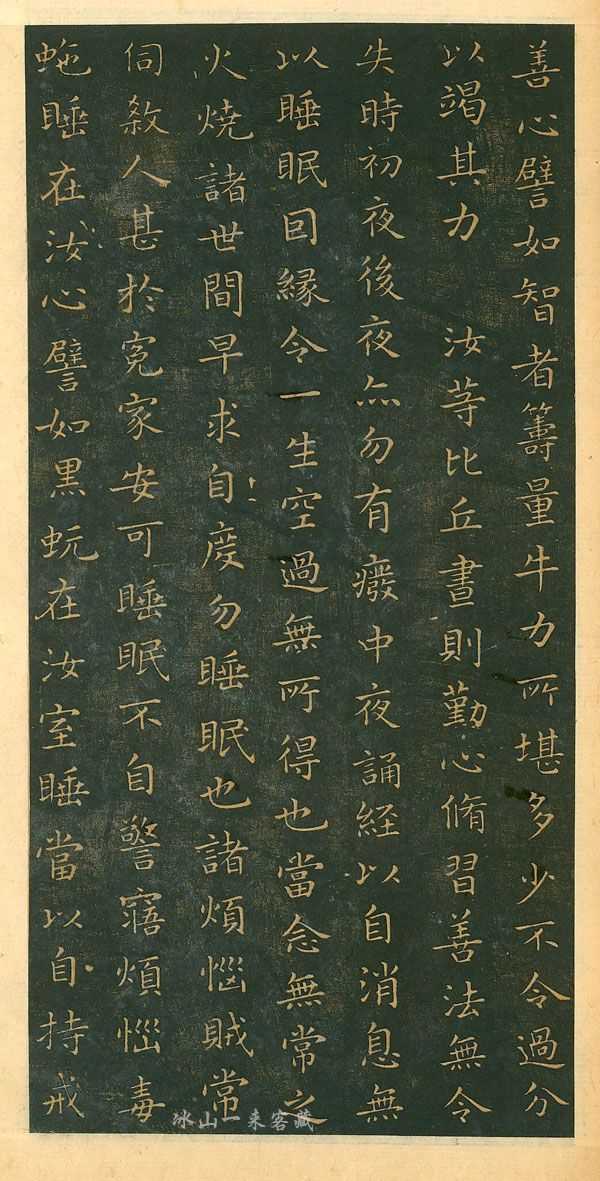 善心譬如智者籌量牛力所堪多少不令過分
以竭其力 汝等比丘晝則勤心脩習善法無令
失時初夜後夜亦勿有癈中夜誦經以自消息無
以睡眠因緣令一生空過無所得也當念無常之
火燒諸世間早求自度勿睡眠也諸煩惱賊常
伺煞人甚於寃家安可睡眠不自警寤煩惱毒
虵睡在汝心譬如黑蚖在汝室睡當以自持戒
冰山一来客藏